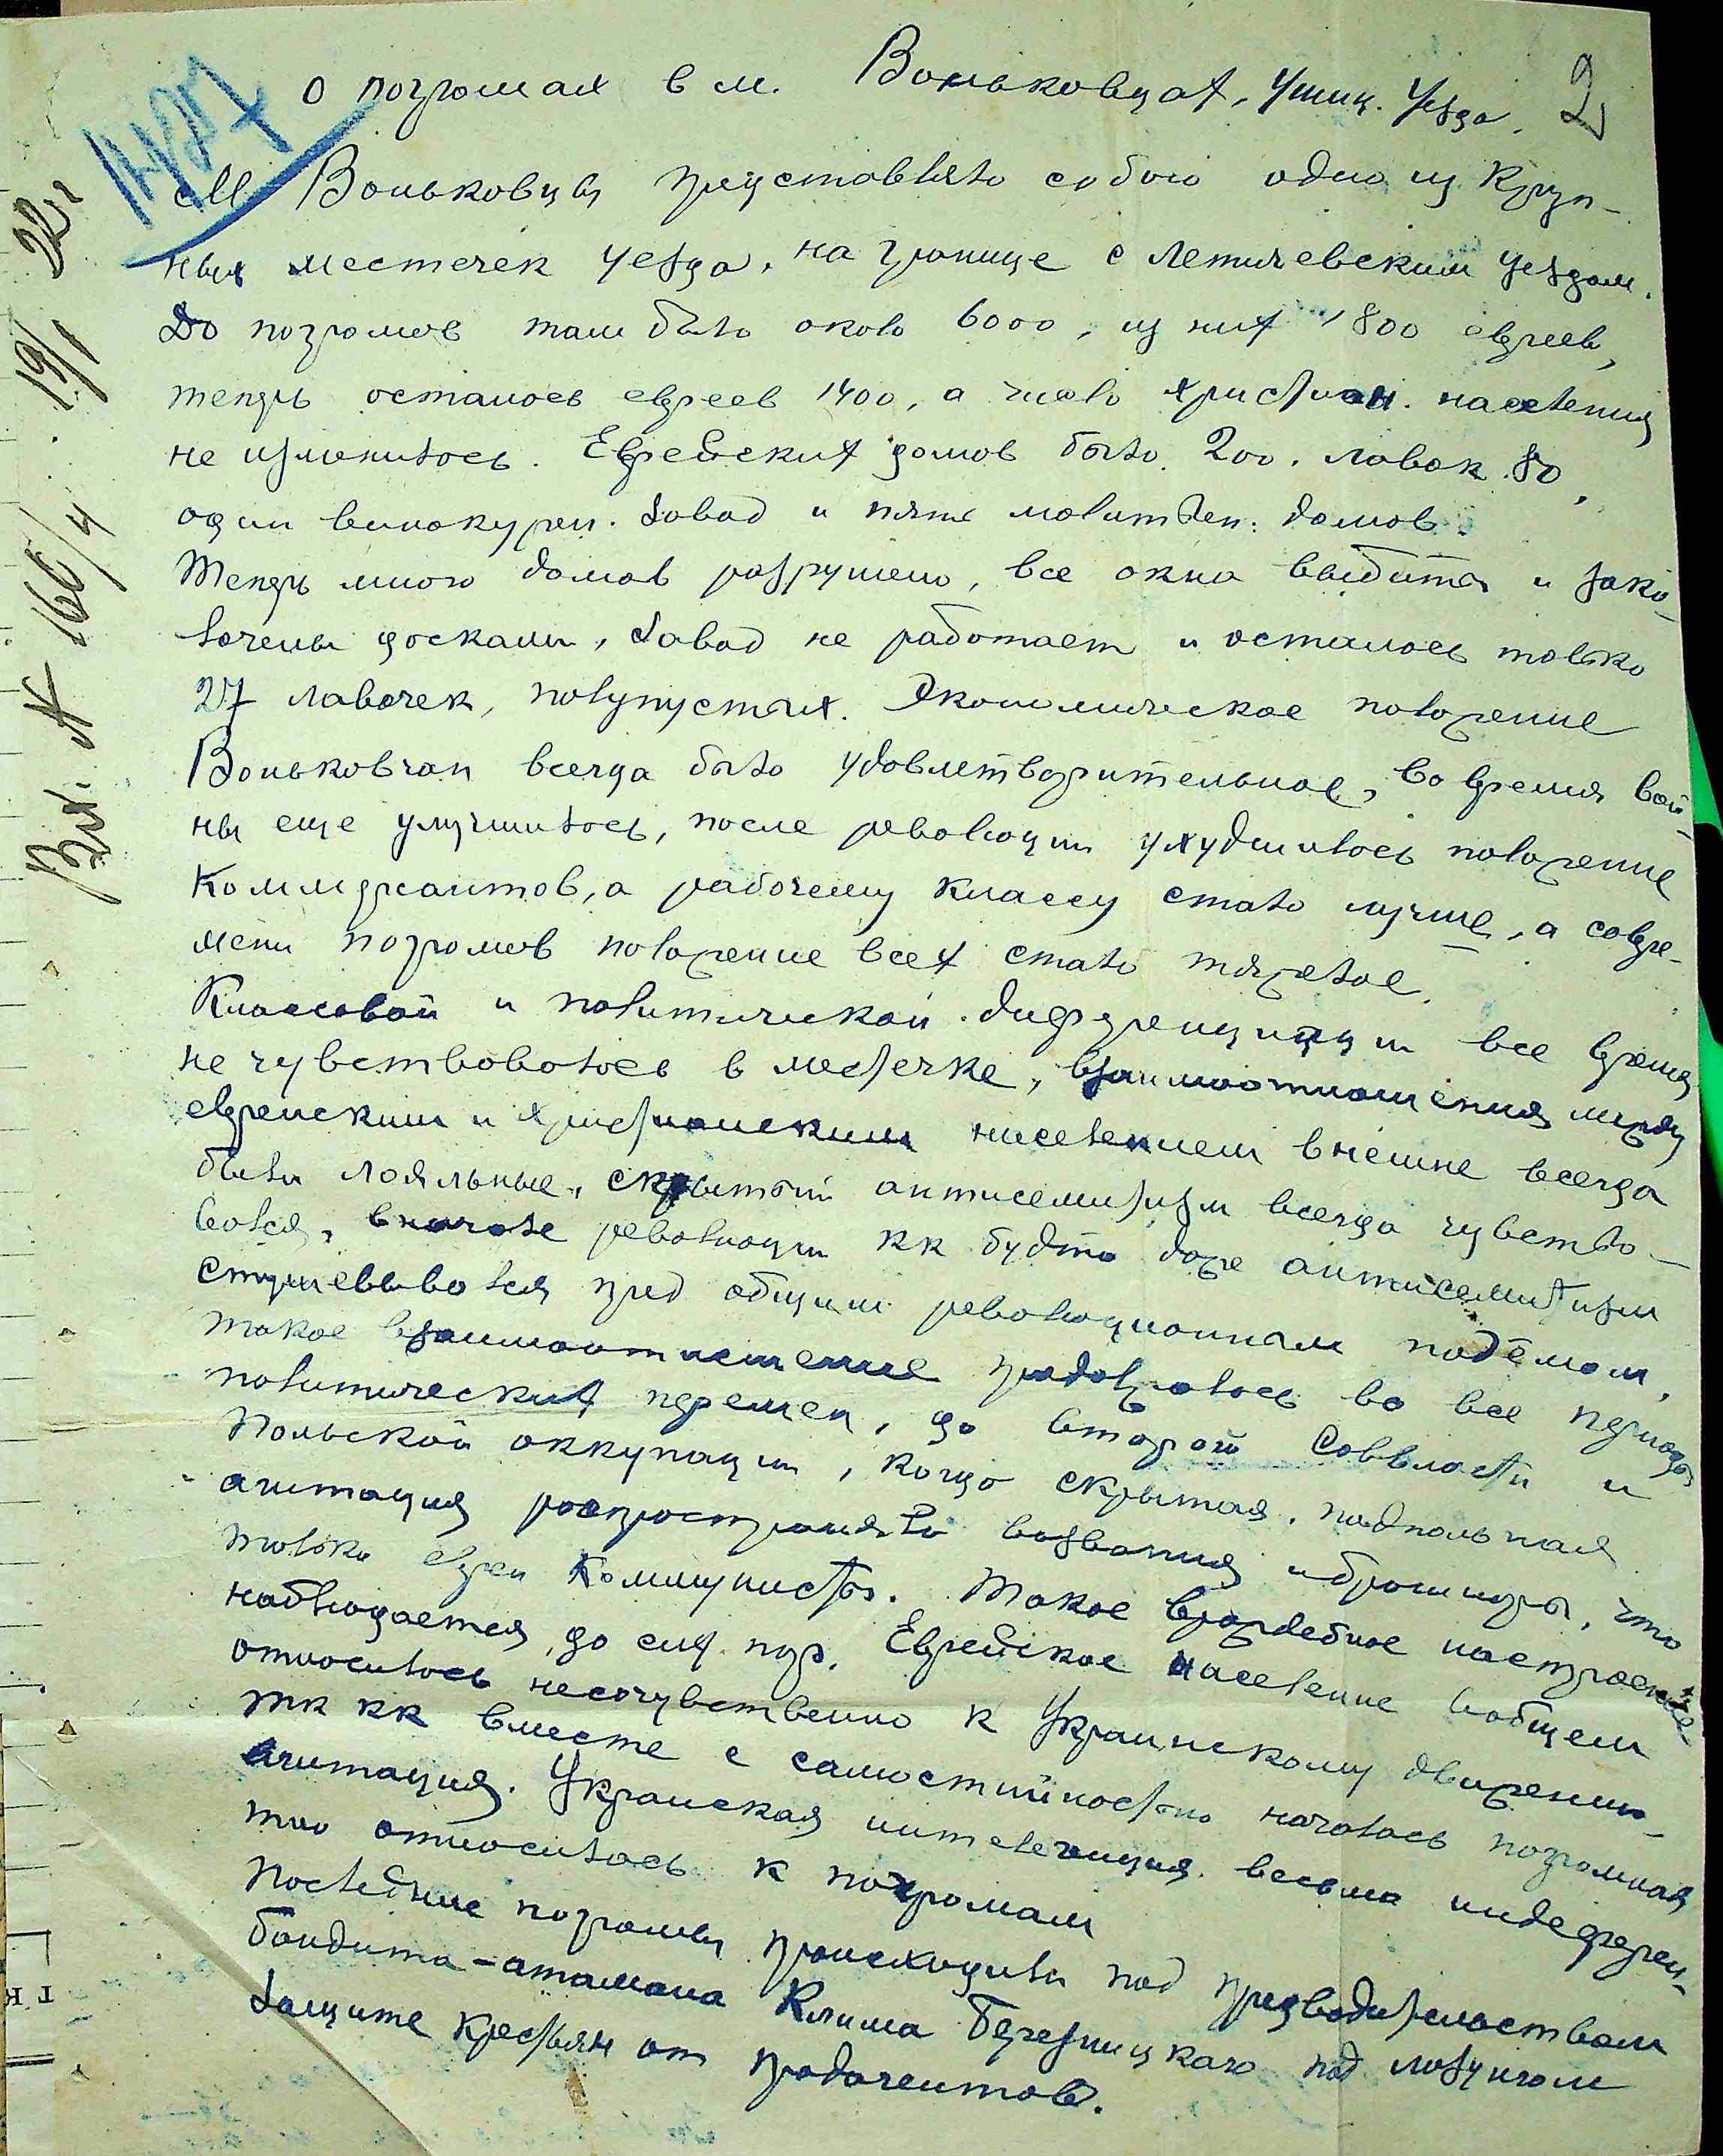 О погромах в м. Воньковцах, Ушиц. Уезда. 2
м. Воньковцы представляло собою одно из круп-
ных местечек уезда, на границе с Летичевским уездом.
До погромов там было около 6000, из них 1800 евреев,
теперь осталось евреев 1400, а число христиан. населения
не изменилось. Еврейских домов было 200, лавок 80,
один винокурен. завод и пять молитвен. домов.
Теперь много домов разрушено, все окна выбиты и зако-
лочены досками, завод не работает и осталось только
27 лавочек, полупустых. Экономическое положение
Воньковчан всегда было удовлетворительное, во время вой-
ны еще улучшилось, после революции ухудшилось положение
коммерсантов, а рабочему классу стало лучше, а со вре-
мени погромов положение всех стало тяжелое.
Классовой и политической диференциации все время
не чувствовалось в местечке, взаимоотношения между
еврейским и христианским населением внешне всегда
были лояльные, скрытый антисемитизм всегда чувство-
вался, вначале революции кк будто даже антисемитизм
стушевывался пред общим революционным подъёмом,
такое взаимоотношение продолжалось во все периоды
политических перемен, до второй Соввласти и
Польской оккупации, когда скрытая, подпольная
агитация распространяла воззвания и брошюры, что
только евреи коммунисты. Такое враждебное настроение
наблюдается до сих пор. Еврейское население вообщем
относилось несочувственно к Украинскому движению
тк кк вместе с самостийностью началась погромная
агитация. Украинская интелегенция весьма индеферен-
тно относилась к погромам
Последние погромы происходили под предводительством
бандита-атамана Клима Березницкого под лозунгом
защите крестьян от продагентов.
Вх. № 166/4 19/1 22 г